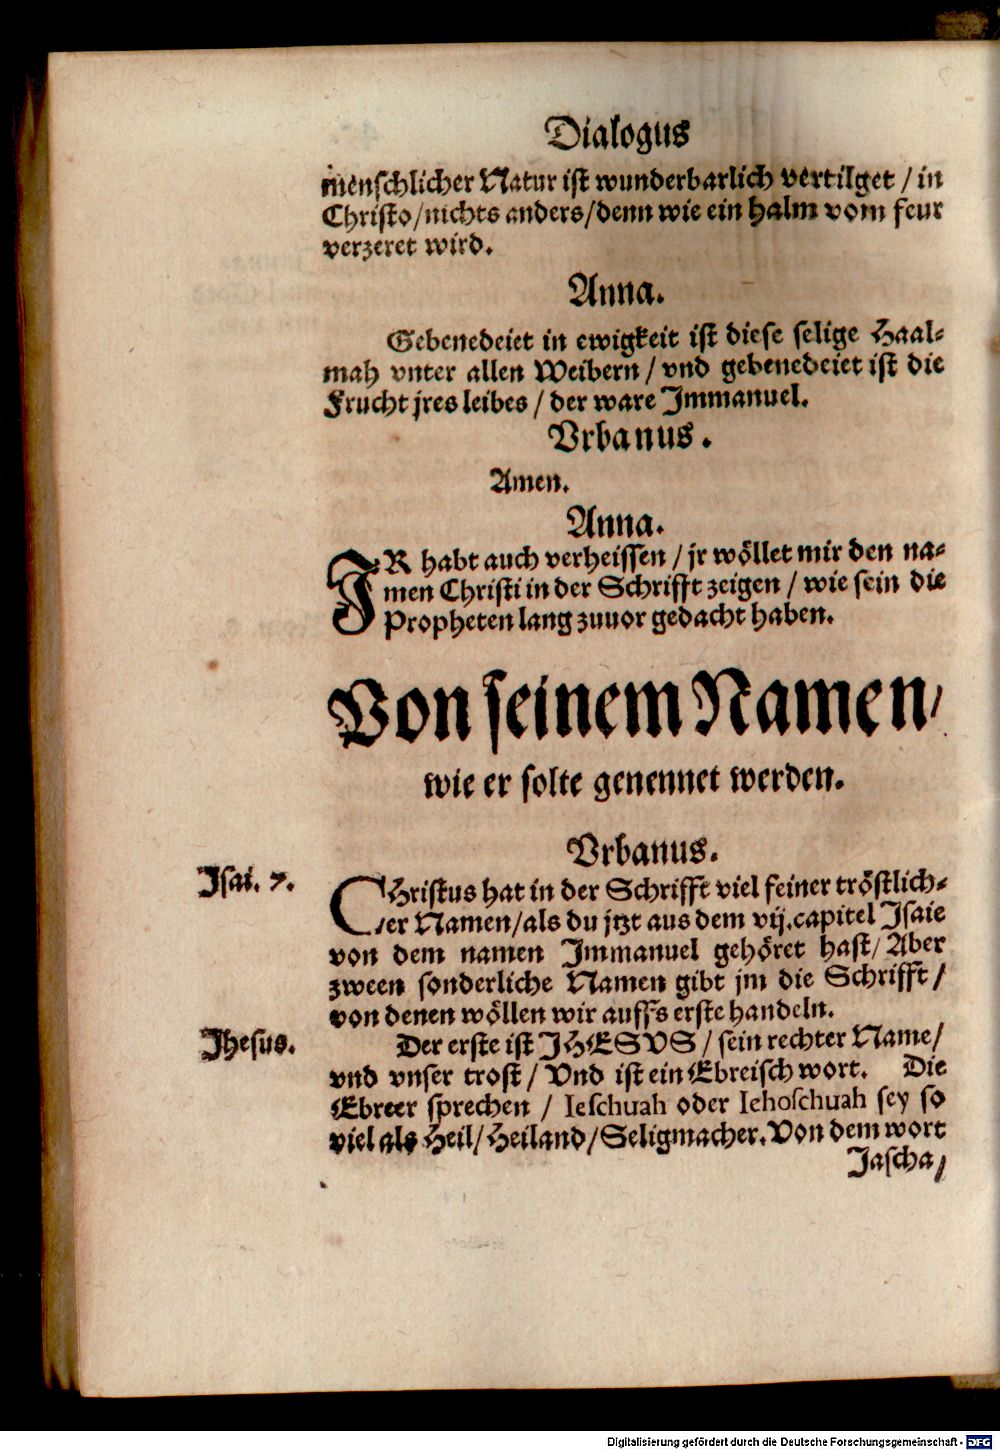 Dialogus
menschlicher Natur ist wunderbarlich vertilget / in
Christo/nichts anders/denn wie ein halm vom feur
verzeret wird.
Anna.
Gebenedeiet in ewigkeit ist diese selige Haal-
mah vnter allen Weibern / vnd gebenedeiet ist die
Frucht jres leibes / der ware Immanuel.
Vrbanus.
Amen.
Anna.
IR habt auch verheissen / jr wöllet mir den na-
men Christi in der Schrifft zeigen / wie sein die
Propheten lang zuuor gedacht haben.
Von seinem Namen/
wie er solte genennet werden.
Vrbanus.
Isai. 7.
CHristus hat in der Schrifft viel feiner tröstlich-
er Namen/als du jtzt aus dem vij.capitel Isaie
von dem namen Immanuel gehöret hast/Aber
zween sonderliche Namen gibt jm die Schrifft/
von denen wöllen wir auffs erste handeln.
Jhesus.
Der erste ist IHESVS / sein rechter Name/
vnd vnser trost / Vnd ist ein Ebreisch wort. Die
Ebreer sprechen / Ieschuah oder Iehoschuah sey so
viel als Heil/Heiland/Seligmacher.Von dem wort
Jascha/
Digitalisierung gefördert durch die Deutsche Forschungsgemeinschaft - DFG